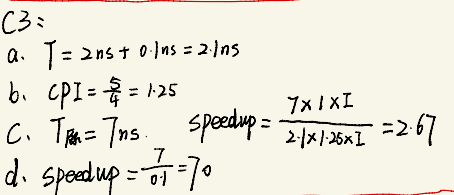 C3:
a. T = 2ns + 0.1ns = 2.1ns
b. CPI = 5/4 = 1.25
c. T = 7ns. speedup = 7×1×I / 2.1×1.25×I = 2.67
d. speedup = 7/0.1 = 70